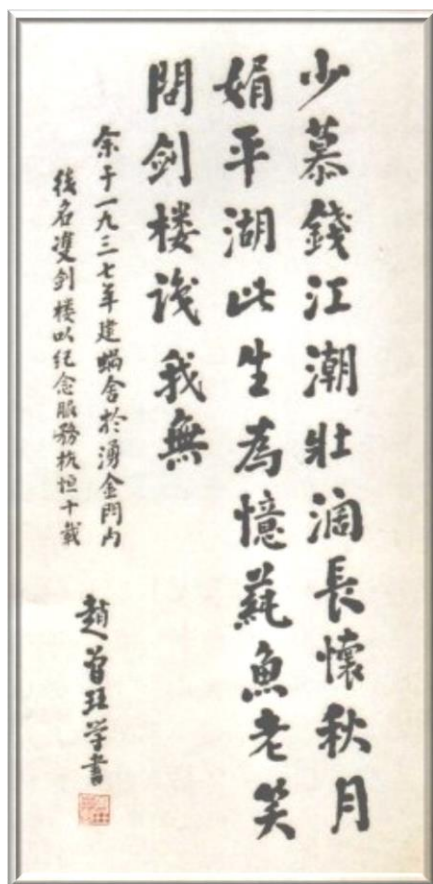 少慕錢江潮壯濶長懷秋月
娟平湖此生為憶蒓魚老笑
問剑楼識我無
余于一九三七年建蝸舍於湧金門内
後名雙剑楼以纪念服務杭恒十載
趙曾珏学書